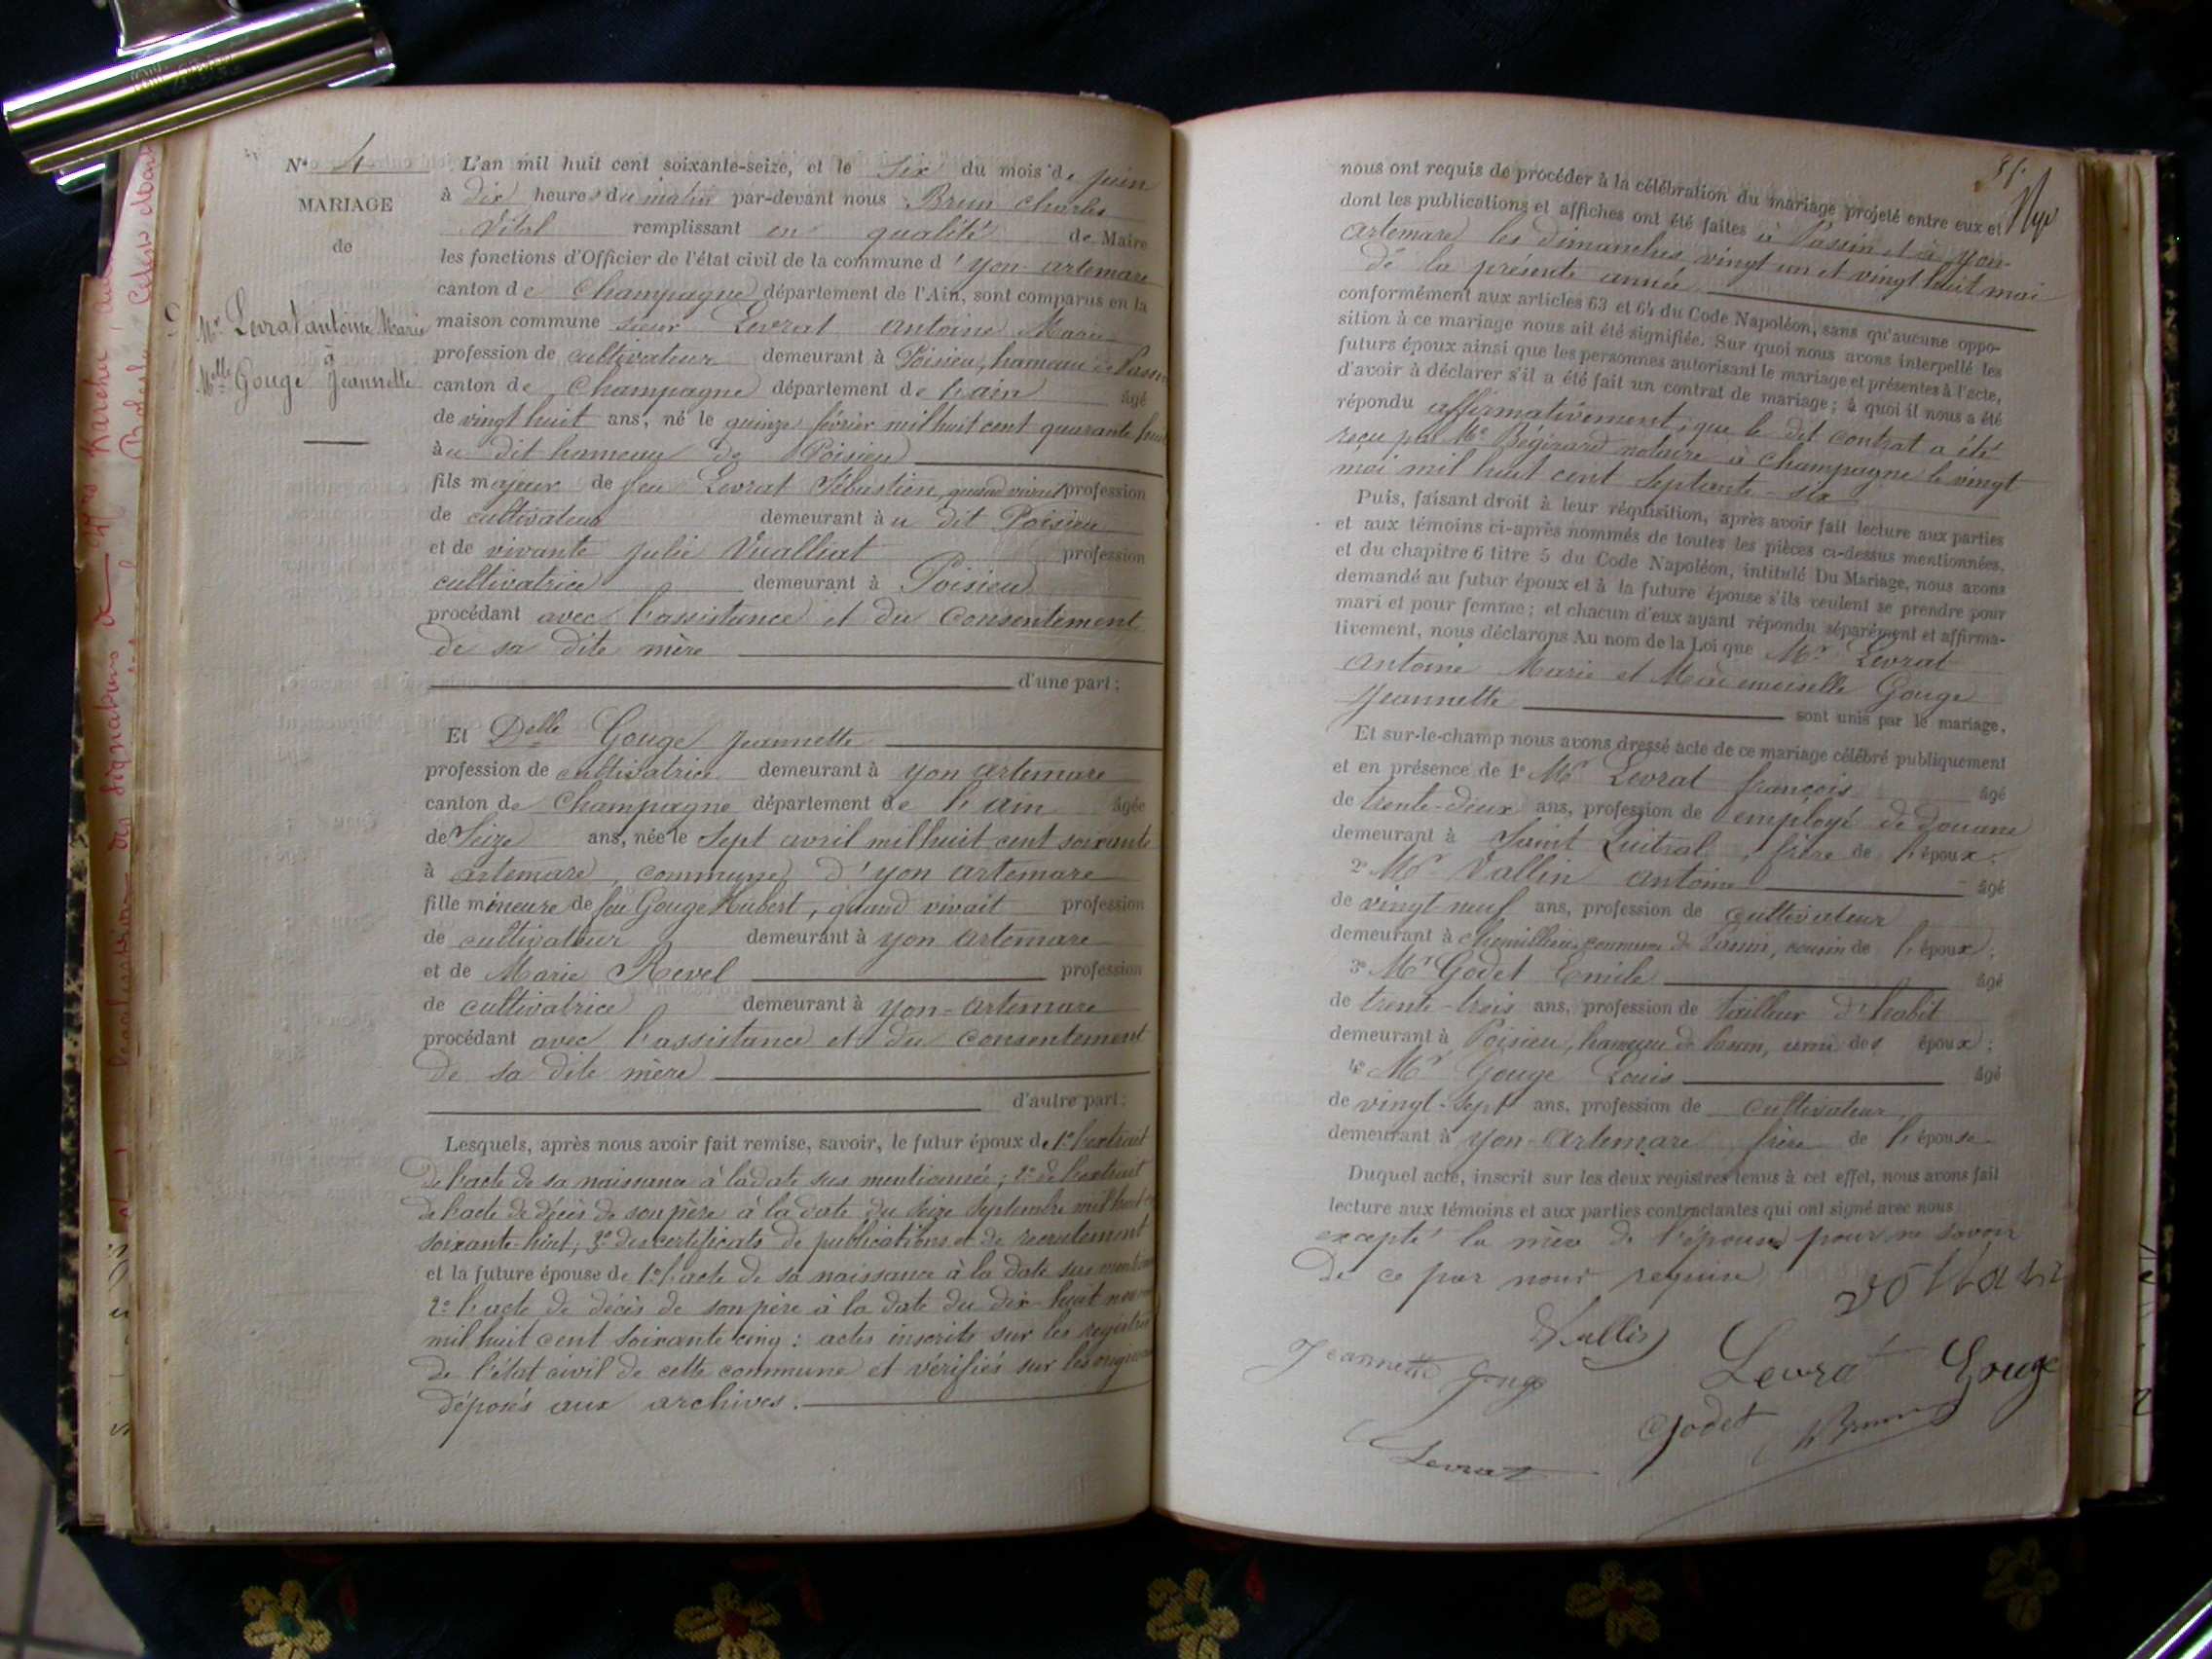 N° 4
MARIAGE
de
Mr Levrat antoine Marie
à
Melle Gouge Jeannette
L'an mil huit cent soixante-seize, et le Six du mois de juin
à dix heures du matin par-devant nous Brun Charles
Vital remplissant en qualité de Maire
les fonctions d'Officier de l'état civil de la commune d'yon-artemare
canton de Champagne département de l'Ain, sont comparus en la
maison commune sieur Levrat antoine Marie
profession de cultivateur demeurant à Poisieu, hameau de Passin
canton de Champagne département de l'ain âgé
de vingt huit ans, né le quinze février mil huit cent quarante huit
au dit hameau de Poisieu
fils majeur de feu Levrat Sébastien, quand vivait profession
de cultivateur demeurant au dit Poisieu
et de vivante julie Vualliat profession
cultivatrice demeurant à Poisieu
procédant avec l'assistance et du Consentement
de sa dite mère
d'une part;
Et Delle Gouge Jeannette
profession de cultivatrice demeurant à yon artemare
canton de Champagne département de l'ain âgée
de Seize ans, née le Sept avril mil huit cent soixante
à artemare, commune d'yon artemare
fille mineure de feu Gouge Hubert, quand vivait profession
de cultivateur demeurant à yon artemare
et de Marie Revel profession
de cultivatrice demeurant à yon-artemare
procédant avec l'assistance et du consentement
de sa dite mère
d'autre part;
Lesquels, après nous avoir fait remise, savoir, le futur époux de 1° l'extrait
de l'acte de sa naissance à la date sus mentionnée; 2° de l'extrait
de l'acte de décès de son père à la date du seize Septembre mil huit
soixante-huit; 3° des certificats de publications et de recrutement
et la future épouse de 1° l'acte de sa naissance à la date sus
2° l'acte de décès de son père à la date du dix-huit
mil huit cent soixante cinq: actes inscrits sur les registres
de l'état civil de cette commune et vérifiés sur les
déposés aux archives.
nous ont requis de procéder à la célébration du mariage projeté entre eux et
dont les publications et affiches ont été faites à Passin et à yon-
artemare les dimanches vingt un et vingt huit mai
de la présente année
conformément aux articles 63 et 64 du Code Napoléon, sans qu'aucune oppo-
sition à ce mariage nous ait été signifiée. Sur quoi nous avons interpellé les
futurs époux ainsi que les personnes autorisant le mariage et présentes à l'acte,
d'avoir à déclarer s'il a été fait un contrat de mariage; à quoi il nous a été
répondu affirmativement, que le dit contrat a été
reçu par Me Bégirard notaire à Champagne le vingt
mai mil huit cent Septante-six
Puis, faisant droit à leur réquisition, après avoir fait lecture aux parties
et aux témoins ci-après nommés de toutes les pièces ci-dessus mentionnées,
et du chapitre 6 titre 5 du Code Napoléon, intitulé Du Mariage, nous avons
demandé au futur époux et à la future épouse s'ils veulent se prendre pour
mari et pour femme; et chacun d'eux ayant répondu séparément et affirma-
tivement, nous déclarons Au nom de la Loi que Mr Levrat
Antoine Marie et Mademoiselle Gouge
Jeannette sont unis par le mariage.
Et sur-le-champ nous avons dressé acte de ce mariage célébré publiquement
et en présence de 1° Mr Levrat françois âgé
de trente-deux ans, profession de employé de Douane
demeurant à Saint frère de l'époux;
2° Mr Vallin antoine âgé
de vingt-neuf ans, profession de cultivateur
demeurant à commune de Passin, cousin de l'époux;
3° Mr Godet Emile âgé
de trente-trois ans, profession de tailleur d'habit
demeurant à Poisieu, hameau de Passin, ami des époux;
4° Mr Gouge Louis âgé
de vingt-sept ans, profession de cultivateur
demeurant à yon-artemare frère de l'épouse
Duquel acte, inscrit sur les deux registres tenus à cet effet, nous avons fait
lecture aux témoins et aux parties contractantes qui ont signé avec nous
excepté la mère de l'épouse pour ne savoir
de ce par nous requise
Vallin
Jeannette Gouge Levrat Gouge
Godet Brun
Levrat